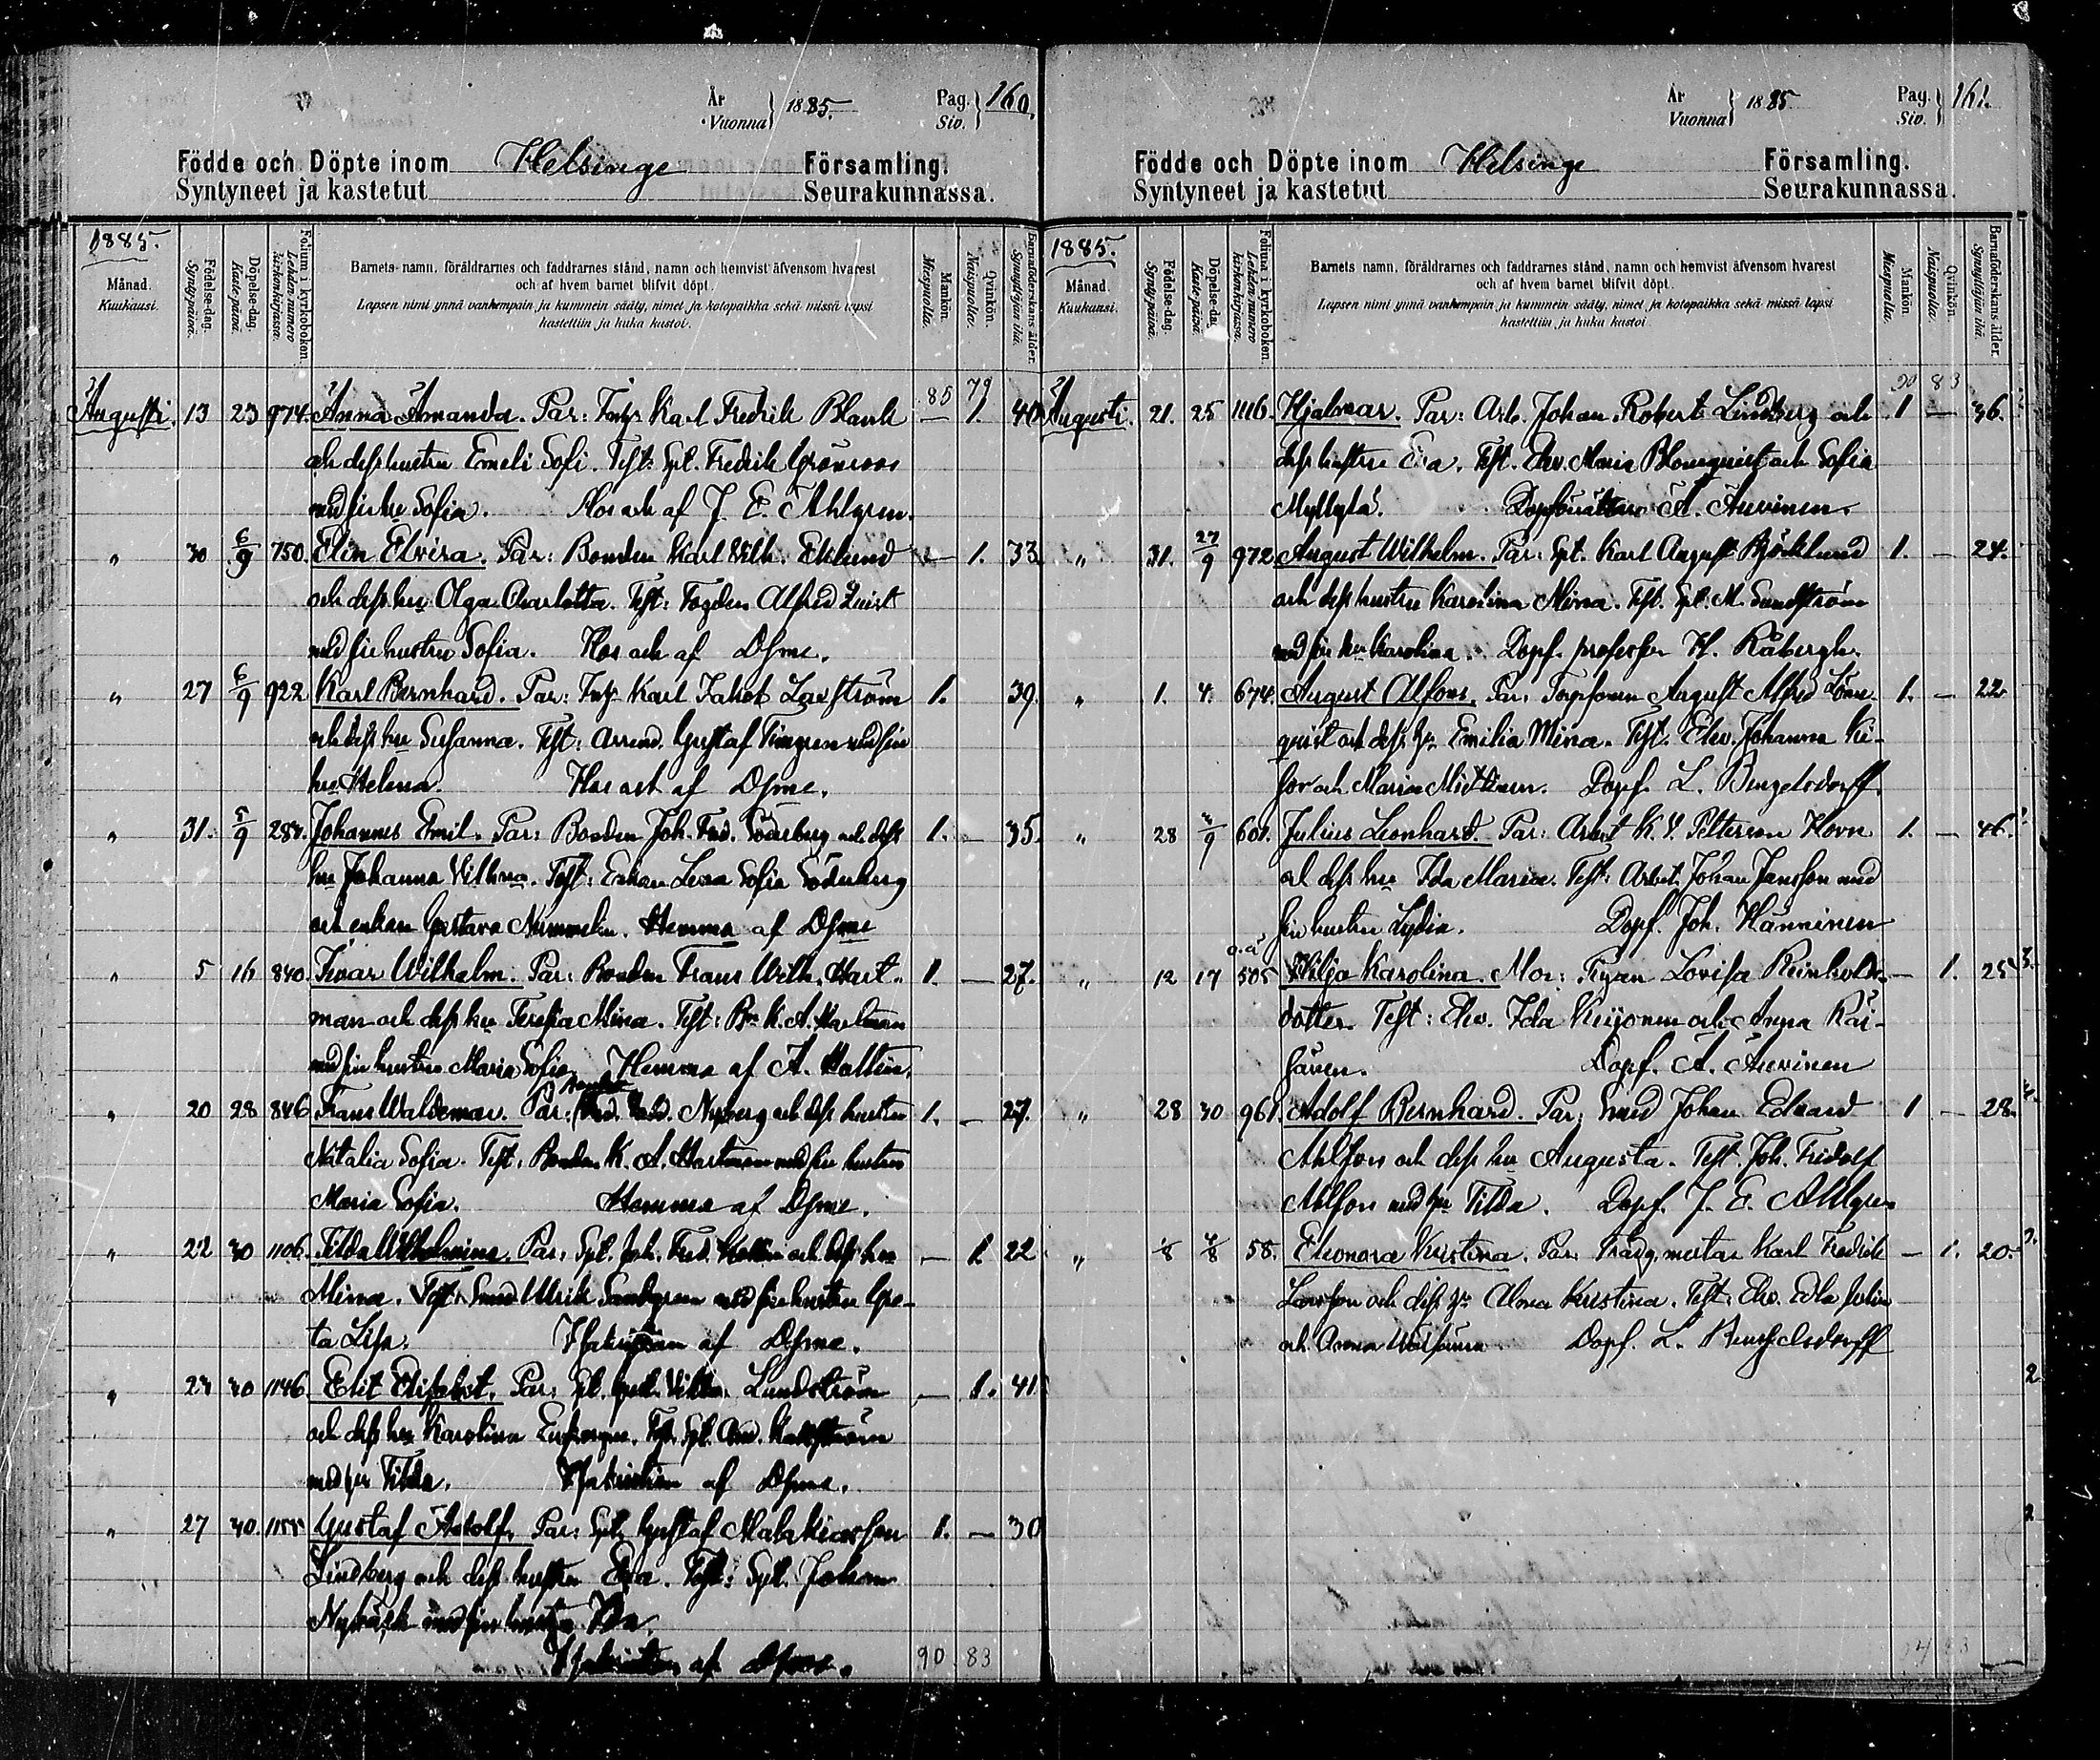 År
Vuonna } 1885.
Pag.
Siv. } 160.
Födde och Döpte inom Helsinge Församling.
Syntyneet ja kastetut Seurakunnassa.
1885.
Månad.
Kuukausi.
Födelse-dag.
Syntypäivä.
Döpelse-dag.
Kaste-päivä.
Folium i kyrkoboken.
Lehden numero kirkonkirjassa.
Barnets namn, föräldrarnes och faddrarnes stånd, namn och hemvist äfvensom hvarest
och af hvem barnet blifvit döpt.
Lapsen nimi ynnä vanhempain ja kummein sääty, nimet ja kotopaikka sekä missä lapsi
kastettiin ja kuka kastoi.
Mankön.
Miespuolia.
Qvinkön.
Naispuolia.
Barnaföderskans ålder.
Synnyttäjän ikä.
85 79
Augusti. 13 23 974. Anna Amanda. Par: Karl Fredrik Blank — 1. 40
och dess hustru Emeli Sofi. Test: Spl. Fredrik Grönroos
med sin hu Sofia. Hos och af J. E. Ahlgren.
" 30 6/9 750. Elin Elvira. Par: Bonden Karl Vilh. Eklund — 1. 33
och dess hu Olga Charlotta. Test: Fogden Alfred Quist
med sin hustru Sofia. Hos och af Dsme.
" 27 6/9 922 Karl Bernhard. Par: Karl Jakob Laxström 1. 39.
och dess hu Susanna. Test: Arrend. Gustaf Timgren med sin
hu Helena. Hos och af Dsme.
" 31. 5/9 287. Johannes Emil. Par: Bonden Joh. Fred. Söderberg och dess 1. — 35.
hu Johanna Vilhna. Test: Enkan Lena Sofia Söderberg
och enkan Gustava Nummelin. Hemma af Dsme
" 5 16 840. Ivar Wilhelm. Par: Bonden Frans Wilh. Hart- 1. — 27.
man och dess hu Teresia Mina. Test: Bn K. A. Hartman
med sin hustru Maria Sofia. Hemma af A. Hallin.
" 20 28 846 Frans Waldemar. Par: Nyberg och dess hustru 1. — 27.
Natalia Sofia. Test: Bonden K. A. Hartman med sin hustru
Maria Sofia. Hemma af Dsme.
" 22 30 1106. Tilda Wilhelmina. Par: Spl. Joh. Fred. och dess hu — 1. 22
Mina. Test: Smed Ulrik Sandgren med sin hustru Gre-
ta Lisa. af Dsme.
" 23 30 1146. Edit Elisabet. Par: Spl. Lundström — 1. 41
och dess hu Karolina Test. Spl.
med hu Tilda. af Dsme.
" 27 30. 1155 Gustaf Adolf. Par: Spl. Gustaf Malakiasson 1. — 30
Lindberg och dess hustru Eva. Test: Spl. Johan
Nybäck med sin hustru Ida.
af Dsme.
90 83
År
Vuonna } 1885
Pag.
Siv. } 161.
Födde och Döpte inom Helsinge Församling.
Syntyneet ja kastetut Seurakunnassa.
1885.
Månad.
Kuukausi.
Födelse-dag.
Syntypäivä.
Döpelse-dag.
Kaste-päivä.
Folium i kyrkoboken.
Lehden numero kirkonkirjassa.
Barnets namn, föräldrarnes och faddrarnes stånd, namn och hemvist äfvensom hvarest
och af hvem barnet blifvit döpt.
Lapsen nimi ynnä vanhempain ja kummein sääty, nimet ja kotopaikka sekä missä lapsi
kastettiin ja kuka kastoi
Mankön.
Miespuolia.
Qvinkön.
Naispuolia.
Barnaföderskans ålder.
Synnyttäjän ikä.
90 83
Augusti. 21. 25 1116. Hjalmar. Par: Arb. Johan Robert Lindberg och 1 — 36.
dess hustru Eva. Test. Ehv. Maria Blomquist och Sofia
Myllylä. Dopförättare A. Auvinen.
" 31. 27/9 972 August Wilhelm. Par: Spl. Karl August Björklund 1. — 24.
och dess hustru Karolina Mina. Test. Spl. M. Sundström
med sin hu Karolina. Dopf. professor H. Råbergh.
" 1. 4. 674. August Alfons. Par: Torpsonen August Alfred Löne- 1. — 22
quist och dess hu Emilia Mina. Test. Ehv. Johanna Ki-
Dopf. L. Bengelsdorff.
" 28 601. Julius Leonhard. Par: Arbet K. V. Petterson Hovn 1. — 46.
och dess hu Ida Maria. Test: Arbet. Johan Jansson med
sin hustru Lydia. Dopf. Joh. Hänninen
" 12 17 505 Wilja Karolina. Mor: Pigan Lovisa Reinholds- — 1. 25
dotter. Test: Ehv. Ida Keijonen och Anna Räi-
sänen. Dopf. A. Auvinen
" 28 30 961. Adolf Bernhard. Par: Smed Johan Edvard 1 — 28.
Ahlfors och dess hu Augusta. Test. Joh. Fridolf
Ahlfors med hu Tilda. Dopf. J. E. Ahlgren
" 58. Eleonora Kristina. Par: Trädg.mästar Karl Fredrik — 1. 20.
och dess hu Alma Kristina. Test. Ehv. Edla
och Anna Dopf. L. Bengelsdorff